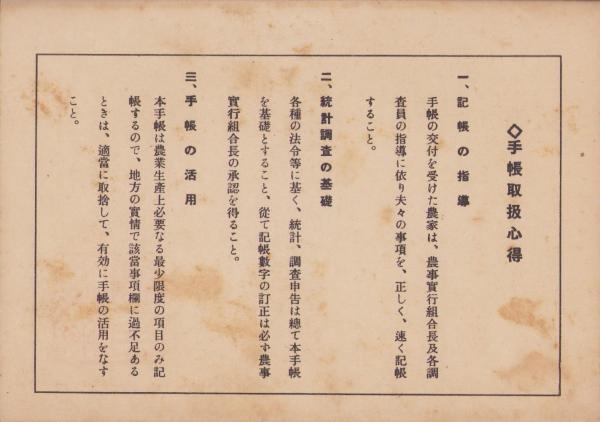 ◇手帳取扱心得
一、記帳の指導
手帳の交付を受けた農家は、農事實行組合長及各調
査員の指導に依り夫々の事項を、正しく、速く記帳
すること。
二、統計調査の基礎
各種の法令等に基く、統計、調査申告は總て本手帳
を基礎とすること、從て記帳數字の訂正は必ず農事
實行組合長の承認を得ること。
三、手帳の活用
本手帳は農業生產上必要なる最少限度の項目のみ記
帳するので、地方の實情で該當事項欄に過不足ある
ときは、適當に取捨して、有効に手帳の活用をなす
こと。